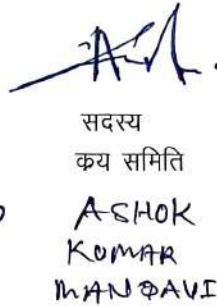 सदस्य
क्रय समिति
ASHOK
KUMAR
MANDAVI